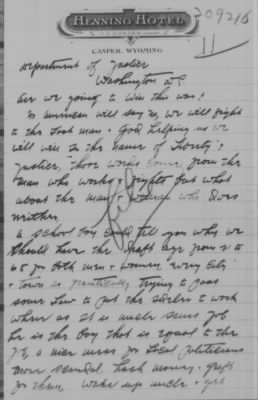 HENNING HOTEL
209216
CASPER, WYOMING
11
Department of Justice
Washington DC
Are we going to win this war?
No American will say no, we will fight
to the last man. God helping us we
will win in the name of Liberty &
Justice, those words come from the
man who works & fights but what
about the man & woman who does
neither,
A school boy could tell you why we
should have the draft age from
65 for both men & women, every City
& town is practically trying to pass
some law to put the idlers to work
where as it is uncle sams job
he is the boy that is equal to the
job, a nice mess for Local politicians
more scandal, hush money, graft
for them, wake up uncle & get